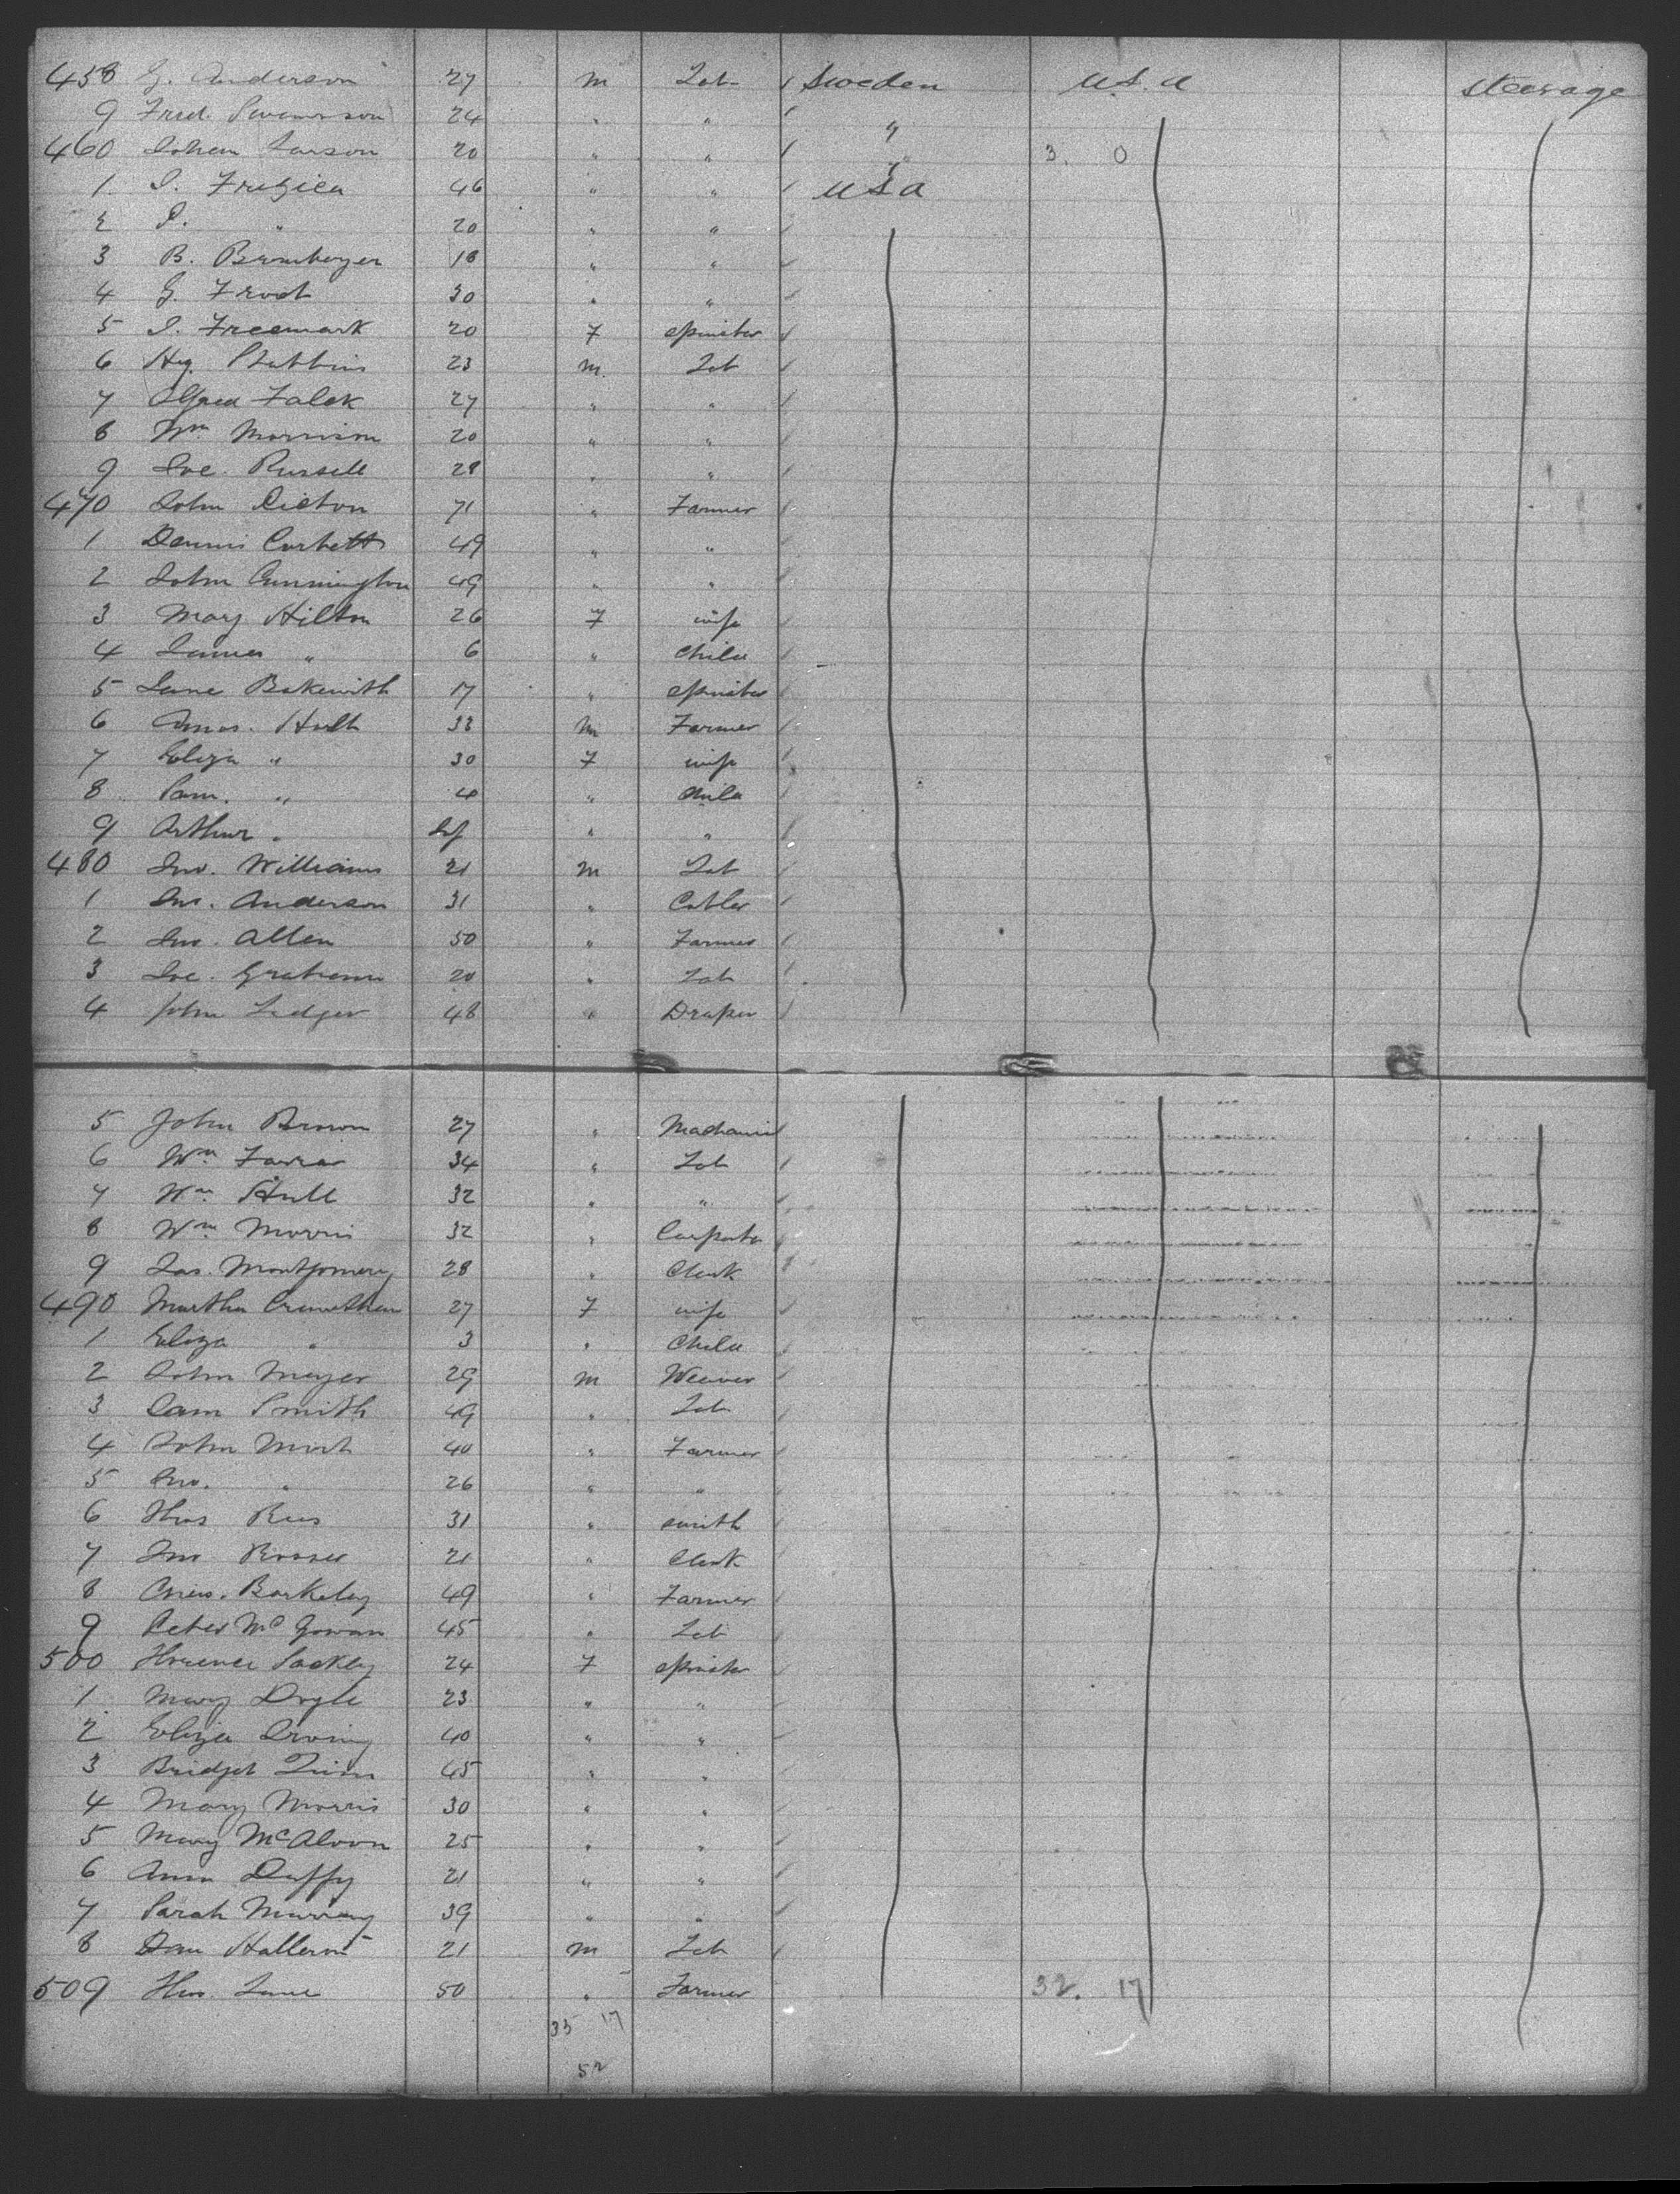 458 G. Anderson 27 m Lab Sweden U.S.A steerage
9 Fred. Swenson 24 " " "
460 Johan Larson 20 " " " 3. 0
1. 46 " " USA
2 " 20 " "
3 B. Bamberger 18 " "
4 G. Frost 30 " "
5 Freemark 20 F spinster
6 Hy. Stubbins 23 m Lab
7 Alfred Falck 27 " "
8 Wm Morrison 20 " "
9 Joe. Russell 28 " "
470 John 71 " Farmer
1 Dennis Corbett 49 " "
2 John Cunnington 49 " "
3 Mary Hilton 26 F wife
4 James " 6 " Child
5 Jane 17 " spinster
6 Amos. Hult 33 m Farmer
7 Eliza " 30 F wife
8 Sam. " 4 " Child
9 Arthur " Inf " "
480 Jno. Williams 21 m Lab
1 Jno. Anderson 31 " Cobler
2 Jno. Allen 50 " Farmer
3 Joe. Graham 20 " Lab
4 John Ledger 48 " Draper
5 John Brown 27 " Machanic
6 Wm Farrar 34 " Lab
7 Wm Hull 32 " "
8 Wm Morris 32 "
9 Jas. Montgomery 28 " Clerk
490 Martha 27 F wife
1 Eliza " 3 " Child
2 John Meyer 29 m Weaver
3 Sam Smith 49 " Lab
4 John 40 " Farmer
5 Jno. " 26 " "
6 Thos Rees 31 " smith
7 Jno 21 " Clerk
8 Barkeley 49 " Farmer
9 Peter McGowan 45 " Lab
500 Florence Sackley 24 F spinster
1 Mary Doyle 23 " "
2 Eliza Irving 40 " "
3 Bridget 45 " "
4 Mary Morris 30 " "
5 Mary 25 " "
6 Ann Duffy 21 " "
7 Sarah Murray 39 " "
8 Dan 21 m Lab
509 Thos. Lane 50 " Farmer 32. 17
35 17
52